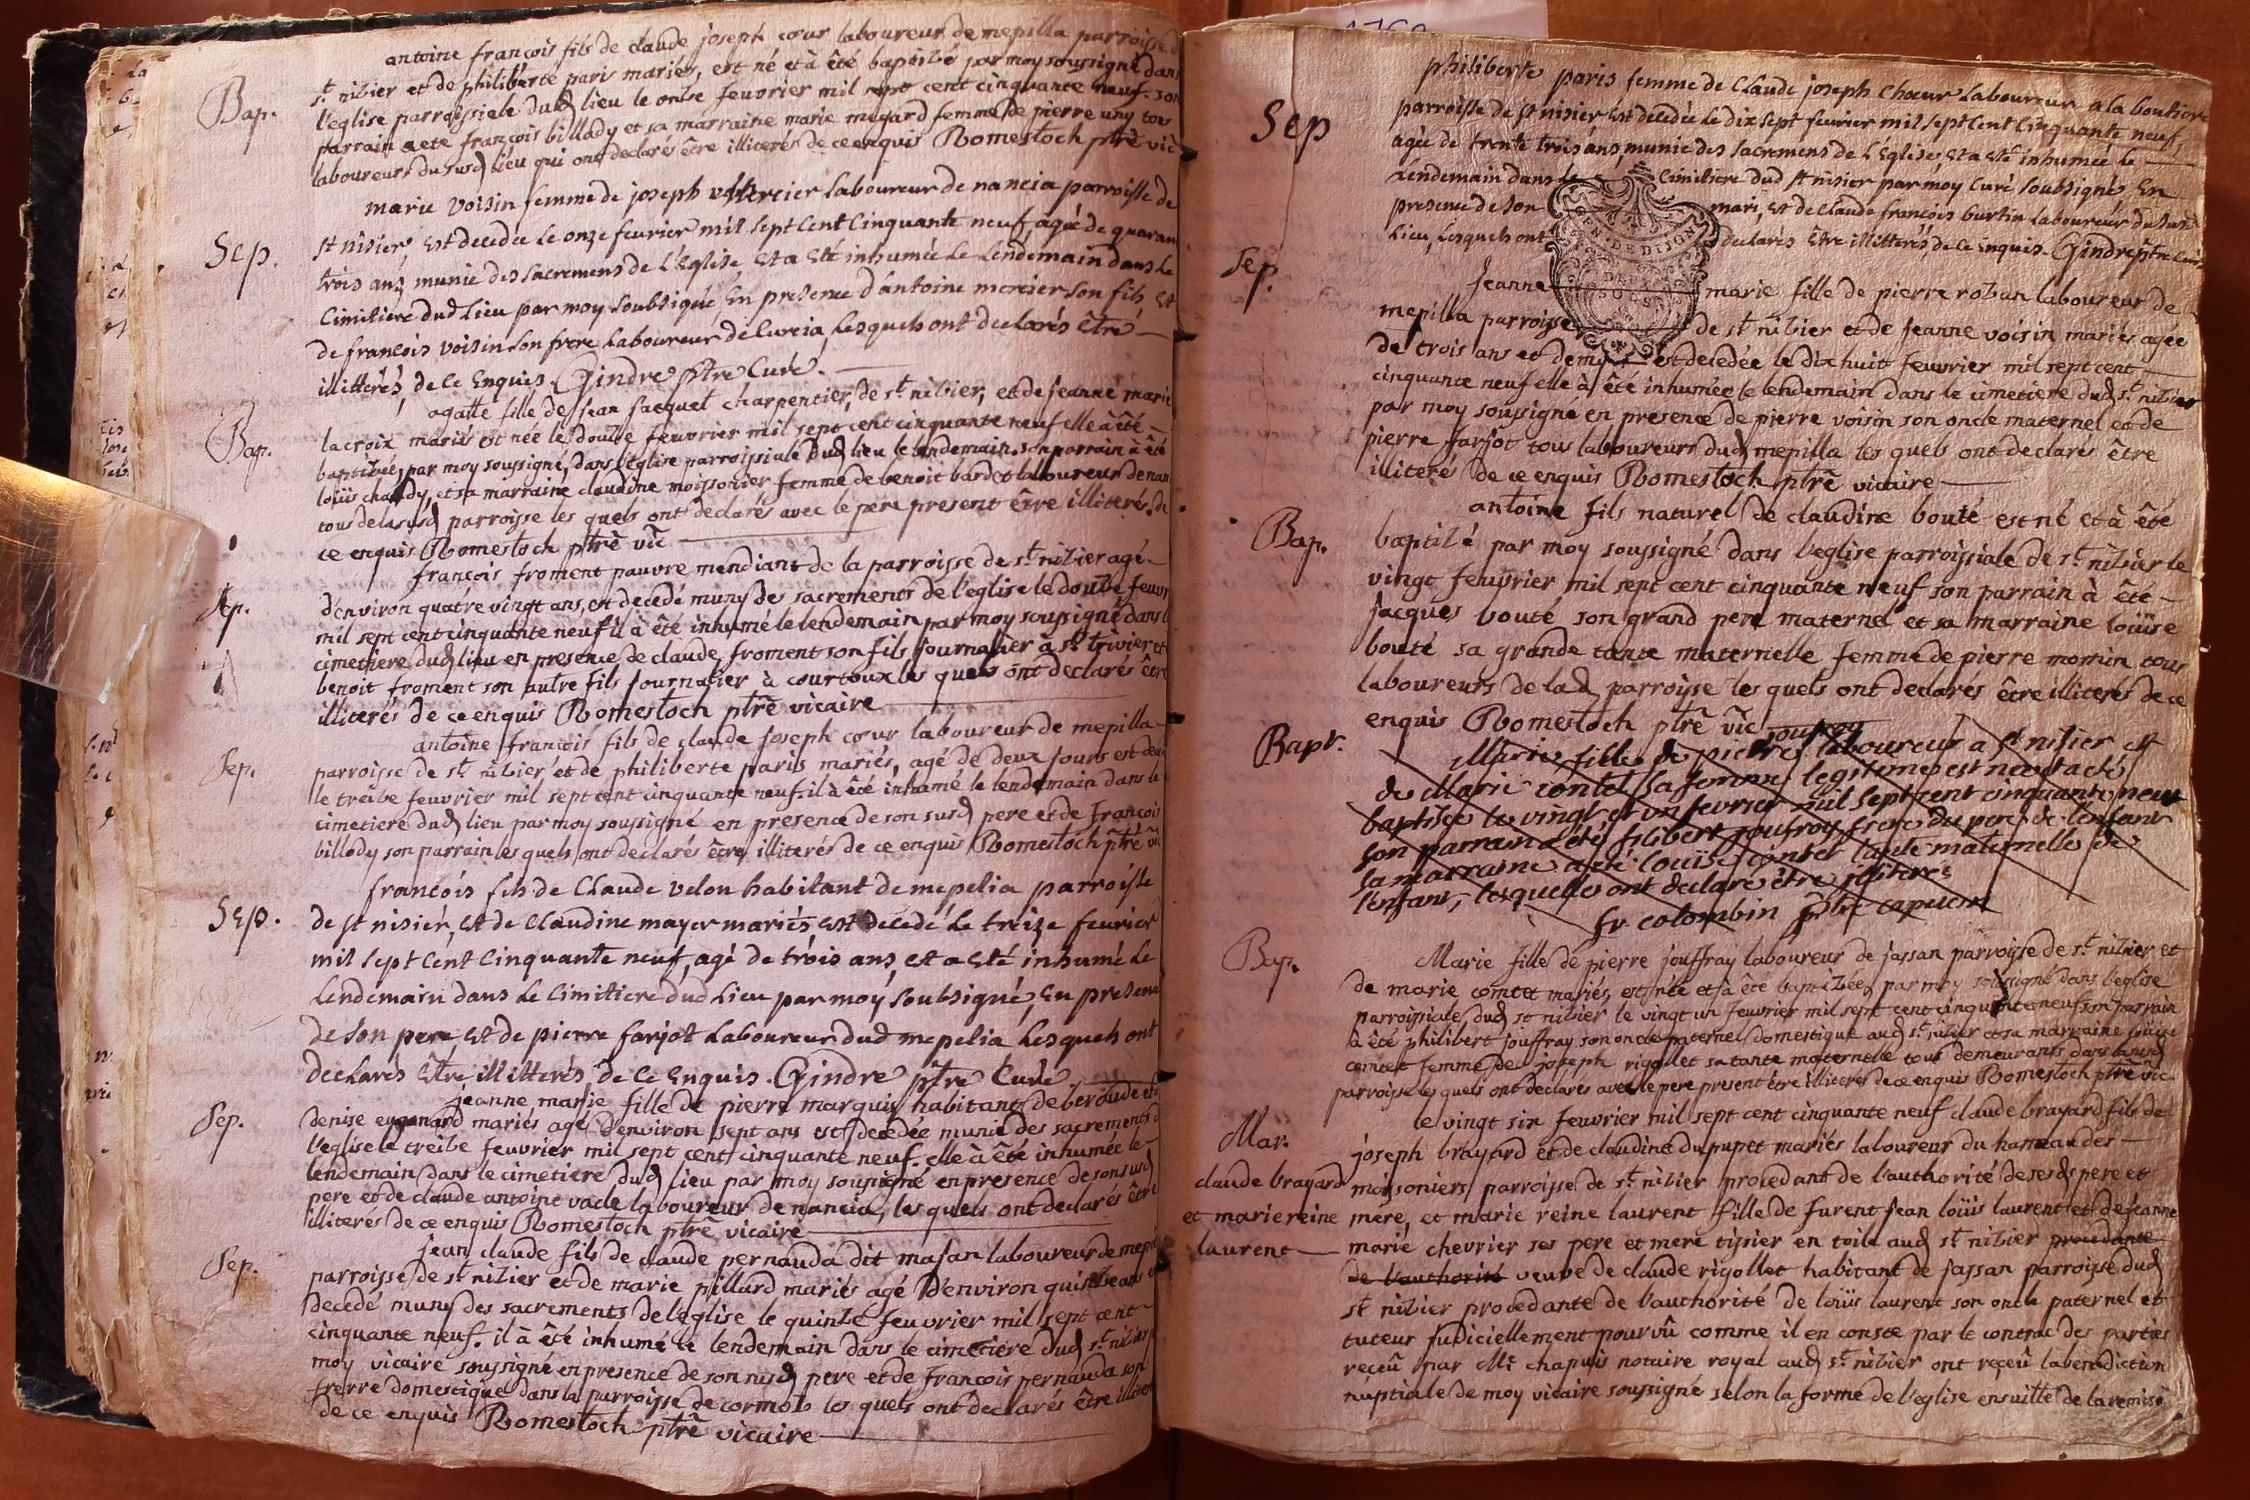 antoine françois fils de claude joseph cœur laboureur de mepilla parroisse
Bap.
st. nibier et de philiberte paris mariés, est né et à été baptisé par moy soussigné dans
l'eglise parroissiale dud lieu le onbe feuvrier mil sept cent cinquante neuf. son
parrain a ete françois billady et sa marraine marie mugard femme de pierre uny tous
laboureurs du susd lieu qui ont declarés être illiterés de ce enquis Romestoch ptrê vic
marie voisin femme de joseph mercier laboureur de nancia parroisse de
Sep.
st nisier, est decedée le onze feurier mil sept cent cinquante neuf, agée de quaran
trois ans, munie des sacremens de l'Eglise et a eté inhumée le lendemain dans le
cimitiere dud lieu par moy soubsigné, En presence d'antoine mercier son fils, et
de françois voisin son frere laboureur de curcia, lesquels ont declarés être
illitterés, de ce enquis. Gindre ptre curé.
agatte fille de jean jacquet charpentier, de st. nibier, et de jeanne marie
Bap.
lacroix mariés est née le doube feuvrier mil sept cent cinquante neuf elle à été
baptibée, par moy soussigné, dans l'eglise parroissiale dud lieu le lendemain. son parrain à été
loüis chardy, et sa marraine claudine moissonier femme de benoit bardet laboureur de nan
tous de la susd parroisse les quels ont declarés avec le pere present être illiterés. de
ce enquis Romestoch ptrê vic
françois froment pauvre mendiant de la parroisse de st. nibier agé
Sep.
d'environ quatre vingt ans, est decedé muny des sacrements de l'eglise le doube feuvr
mil sept cent cinquante neuf il à été inhumé le lendemain par moy soussigné dans l
cimetiere dud lieu en presence de claude froment son fils journalier à st. trivier et
benoit froment son autre fils journalier à courtoux les quels ont declarés être
illiterés de ce enquis Romestoch ptrê vicaire
antoine françois fils de claude joseph cœur laboureur de mepilla
Sep.
parroisse de st. nibier et de philiberte paris mariés, agé de deux jours est dece
le treibe feuvrier mil sept cent cinquante neuf. il à été inhumé le lendemain dans le
cimetiere dud lieu par moy soussigné en presence de son susd pere et de françois
billady son parrain les quels ont declarés être illiterés de ce enquis Romestoch ptrê vic
françois fils de Claude velon habitant de mepelia parroisse
Sep.
de st nisier, et de Claudine mayer mariés, est decedé le treize feurier
mil sept cent cinquante neuf, agé de trois ans, et a eté inhumé le
lendemain dans le cimitiere dud lieu par moy soubsigné, En presence
de son pere et de pierre farjot laboureur dud mepelia lesquels ont
declarés être illitterés, de ce enquis. Gindre ptre Curé
jeanne marie fille de pierre marquis habitant de beroude et
Sep.
denise mariés agé d'environ sept ans est decedée munie des sacrements d
l'eglise le treibe feuvrier mil sept cent cinquante neuf. elle à été inhumée le
lendemain dans le cimetiere dud lieu par moy soussigné en presence de son susd
pere et de claude antoine vacle laboureur de nancia, les quels ont declarés être
illiterés de ce enquis Romestoch ptrê vicaire
jean claude fils de claude pernauda dit masan laboureur de mepil
Sep.
parroisse de st. nibier et de marie pillard mariés agé d'environ quinbe ans e
decedé muny des sacrements de l'eglise le quinbe feuvrier mil sept cent
cinquante neuf. il à été inhumé le lendemain dans le cimetiere dud st. nibier
moy vicaire soussigné en presence de son susd pere et de françois pernauda son
frerre domestique dans la parroisse de cormob les quels ont declarés être illiter
de ce enquis Romestoch ptrê vicaire
philiberte paris femme de Claude joseph Chœur laboureur a la boutiere
Sep
parroisse de st nisier est decedée le dix sept feurier mil sept cent cinquante neuf,
agée de trente trois ans, munie des sacremens de l'Eglise, et a eté inhumée le
lendemain dans le cimitiere dud st nisier par moy Curé soubsigné En
presence de son mari, et de Claude françois burtin laboureur du susd
lieu, lesquels ont declarés être illitterés, de ce enquis. Gindre ptre Curé
GEN. DE DIJON
DEUX
SOLS
Sep.
Jeanne marie fille de pierre roban laboureur de
mepilla parroisse de st. nibier et de jeanne voisin mariés agée
de trois ans et demy est decedée le dix huit feuvrier mil sept cent
cinquante neuf elle à été inhumée le lendemain dans le cimetiere dud st. nibier
par moy soussigné en presence de pierre voisin son oncle maternel et de
pierre farjot tous laboureurs dud mepilla les quels ont declarés être
illiterés de ce enquis Romestoch ptrê vicaire
antoine fils naturel de claudine bouté est né et à été
Bap.
baptibé par moy soussigné dans l'eglise parroissiale de st. nibier le
vingt feuvrier mil sept cent cinquante neuf son parrain à été
jacques bouté son grand pere maternel et sa marraine loüise
bouté sa grande tante maternelle femme de pierre momin tous
laboureurs de lad parroisse les quels ont declarés être illiterés de ce
enquis Romestoch ptrê vic
Bapt.
joufroy
Marie fille de pierre laboureur a st nisier et
de Marie contet sa femme legitime est nee et a eté
baptisée le vingt et un fevrier mil sept cent cinquante neuf
son parrain a été filibert joufroy frere du pere de l'enfant
sa marraine a été loüise contet tante maternelle de
l'enfant, lesquelles ont declaré être illiterés
fr colombin ptre capucin
Bap.
Marie fille de pierre jouffray laboureur de jassan parroisse de st. nibier et
de marie comtet mariés, est née et à été baptibée, par moy soussigné dans l'eglise
parroissiale dud st nibier le vingt un feuvrier mil sept cent cinquante neuf son parrain
à été philibert jouffray son oncle paternel domestique aud st. nibier et sa marraine loüise
comtet femme de joseph rigollet sa tante maternelle tous demeurants dans lausd
parroisse les quels ont declarés avec le pere present être illiterés de ce enquis Romestoch ptrê vic
le vingt six feuvrier mil sept cent cinquante neuf claude brayard fils de
Mar.
joseph brayard et de claudine dupupet mariés laboureur du hameau des
claude brayard
moissoniers parroisse de st. nibier procedant de l'authorité de sesd pere et
et marie reine
mere, et marie reine laurent fille de furent jean loüis laurent et de jeanne
laurent
marie chevrier ses pere et mere tissier en toile aud st. nibier procedante
de l'authorité veuve de claude rigollet habitant de jassan parroisse dud
st nibier procedante de l'authorité de loüis laurent son oncle paternel et
tuteur judiciellement pourvû comme il en conste par le contrac des parties
reçeû par Mt chapuis notaire royal aud st. nibier ont reçeû la benediction
nuptiale de moy vicaire soussigné selon la forme de l'eglise ensuitte de la remise